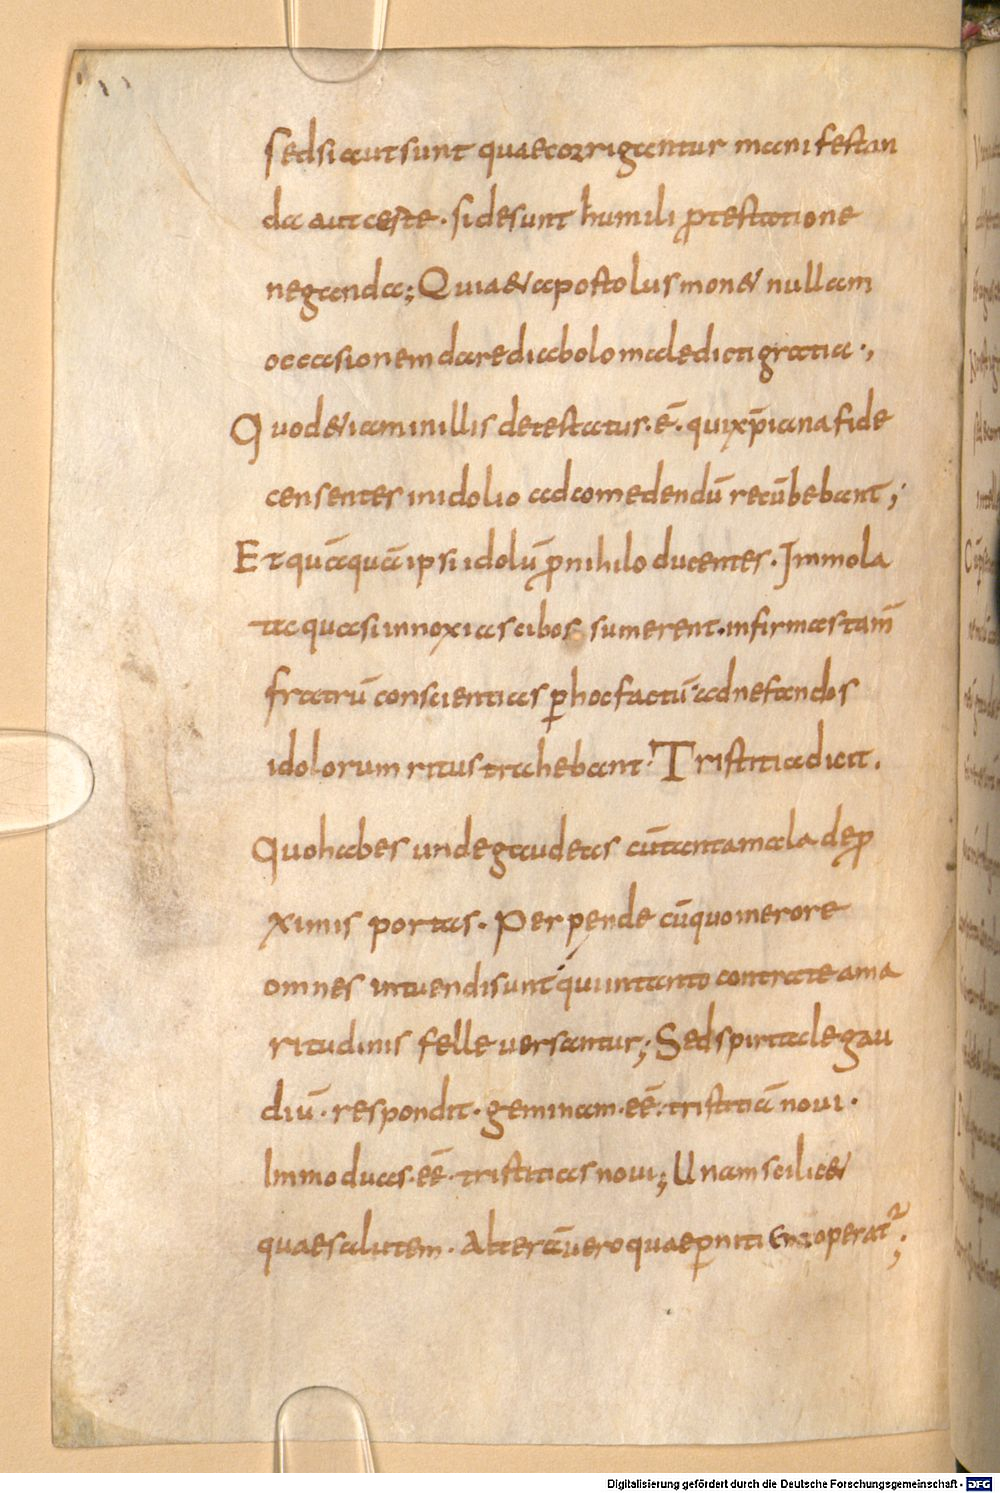 sed si aut sunt quae corrigantur manifestan
da aut caeste · si desunt humili ꝓtestatione
neganda; Quia & apostolus mon& nullam
occasionem dare diabolo maledicti gratia ·,
Quod & iam in illis detestatus · ē · qui xp̄iana fide
censentes in idolio ad comedendū recūbebant;
Et quāquā ipsi idolū ꝓ nihilo ducentes · Immola
ta quasi innoxias cibos sumerent · infirmas tam̄
fratrū conscientias ꝑ hoc factū ad nefandos
idolorum ritus trahebant · Tristitia dicit.
Quo habes unde gaudeas cū tanta mala de ꝓ
ximis portas. Perpende cū quo merore
omnes intuendi sunt qui in tanto contra te ama
ritudinis felle versantur; Sed spiritale gau
diū · respondit · geminam · eē · tristitiā novi ·
Immo duas · eē · tristitias novi; Unam scilic&
quae salutem · Alterā vero quae ꝑnitiem operat²;
Digitalisierung gefördert durch die Deutsche Forschungsgemeinschaft - DFG